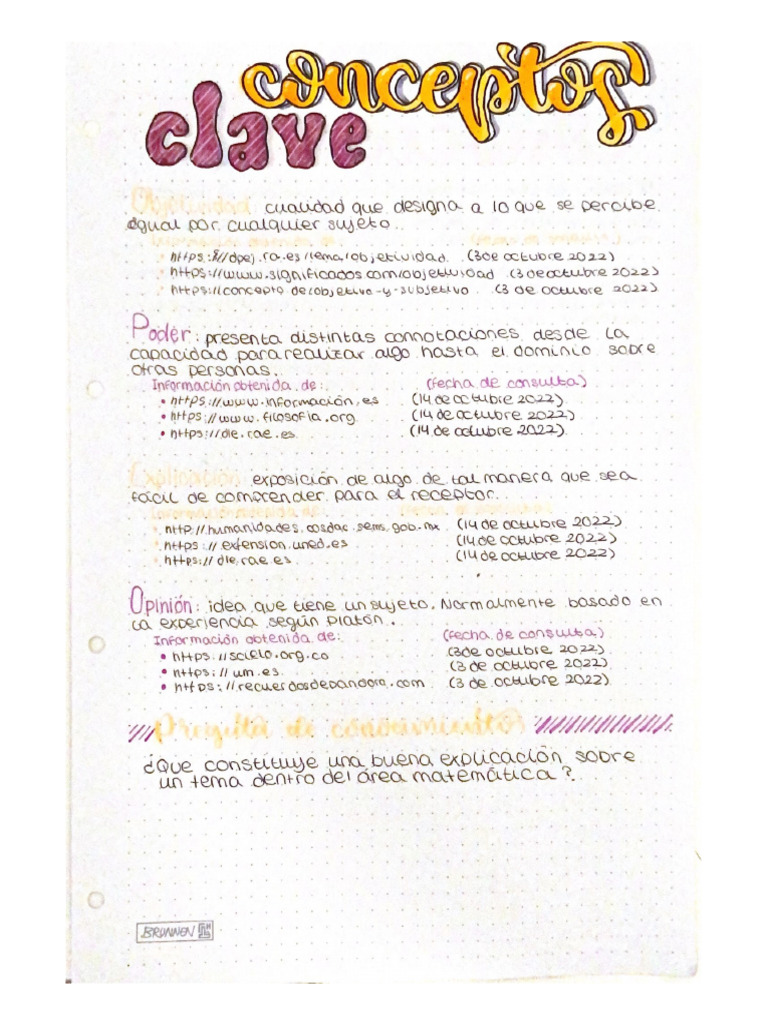 conceptos
clave
Objetividad: cualidad que designa a lo que se percibe
igual por cualquier sujeto.
Información obtenida de: (fecha de consulta)
https://dpej.rae.es/lema/objetividad (3 de octubre 2022)
https://www.significados.com/objetividad (3 de octubre 2022)
https://concepto.de/objetivo-y-subjetivo (3 de octubre 2022)
Poder: presenta distintas connotaciones desde la
capacidad para realizar algo hasta el dominio sobre
otras personas.
Información obtenida de: (fecha de consulta)
• https://www.información.es (14 de octubre 2022)
• https://www.filosofia.org (14 de octubre 2022)
• https://dle.rae.es (14 de octubre 2022)
Explicación: exposición de algo de tal manera que sea
fácil de comprender para el receptor.
Información obtenida de: (fecha de consulta)
• http://humanidades.cosdac.sems.gob.mx (14 de octubre 2022)
• https://extension.uned.es (14 de octubre 2022)
• https://dle.rae.es (14 de octubre 2022)
Opinión: idea que tiene un sujeto. Normalmente basado en
la experiencia según Platón.
Información obtenida de: (fecha de consulta)
• https://scielo.org.co (3 de octubre 2022)
• https://um.es (3 de octubre 2022)
• https://recuerdosdepandora.com (3 de octubre 2022)
Pregunta de conocimiento
¿Que constituye una buena explicación sobre
un tema dentro del área matemática?
BRUNNEN